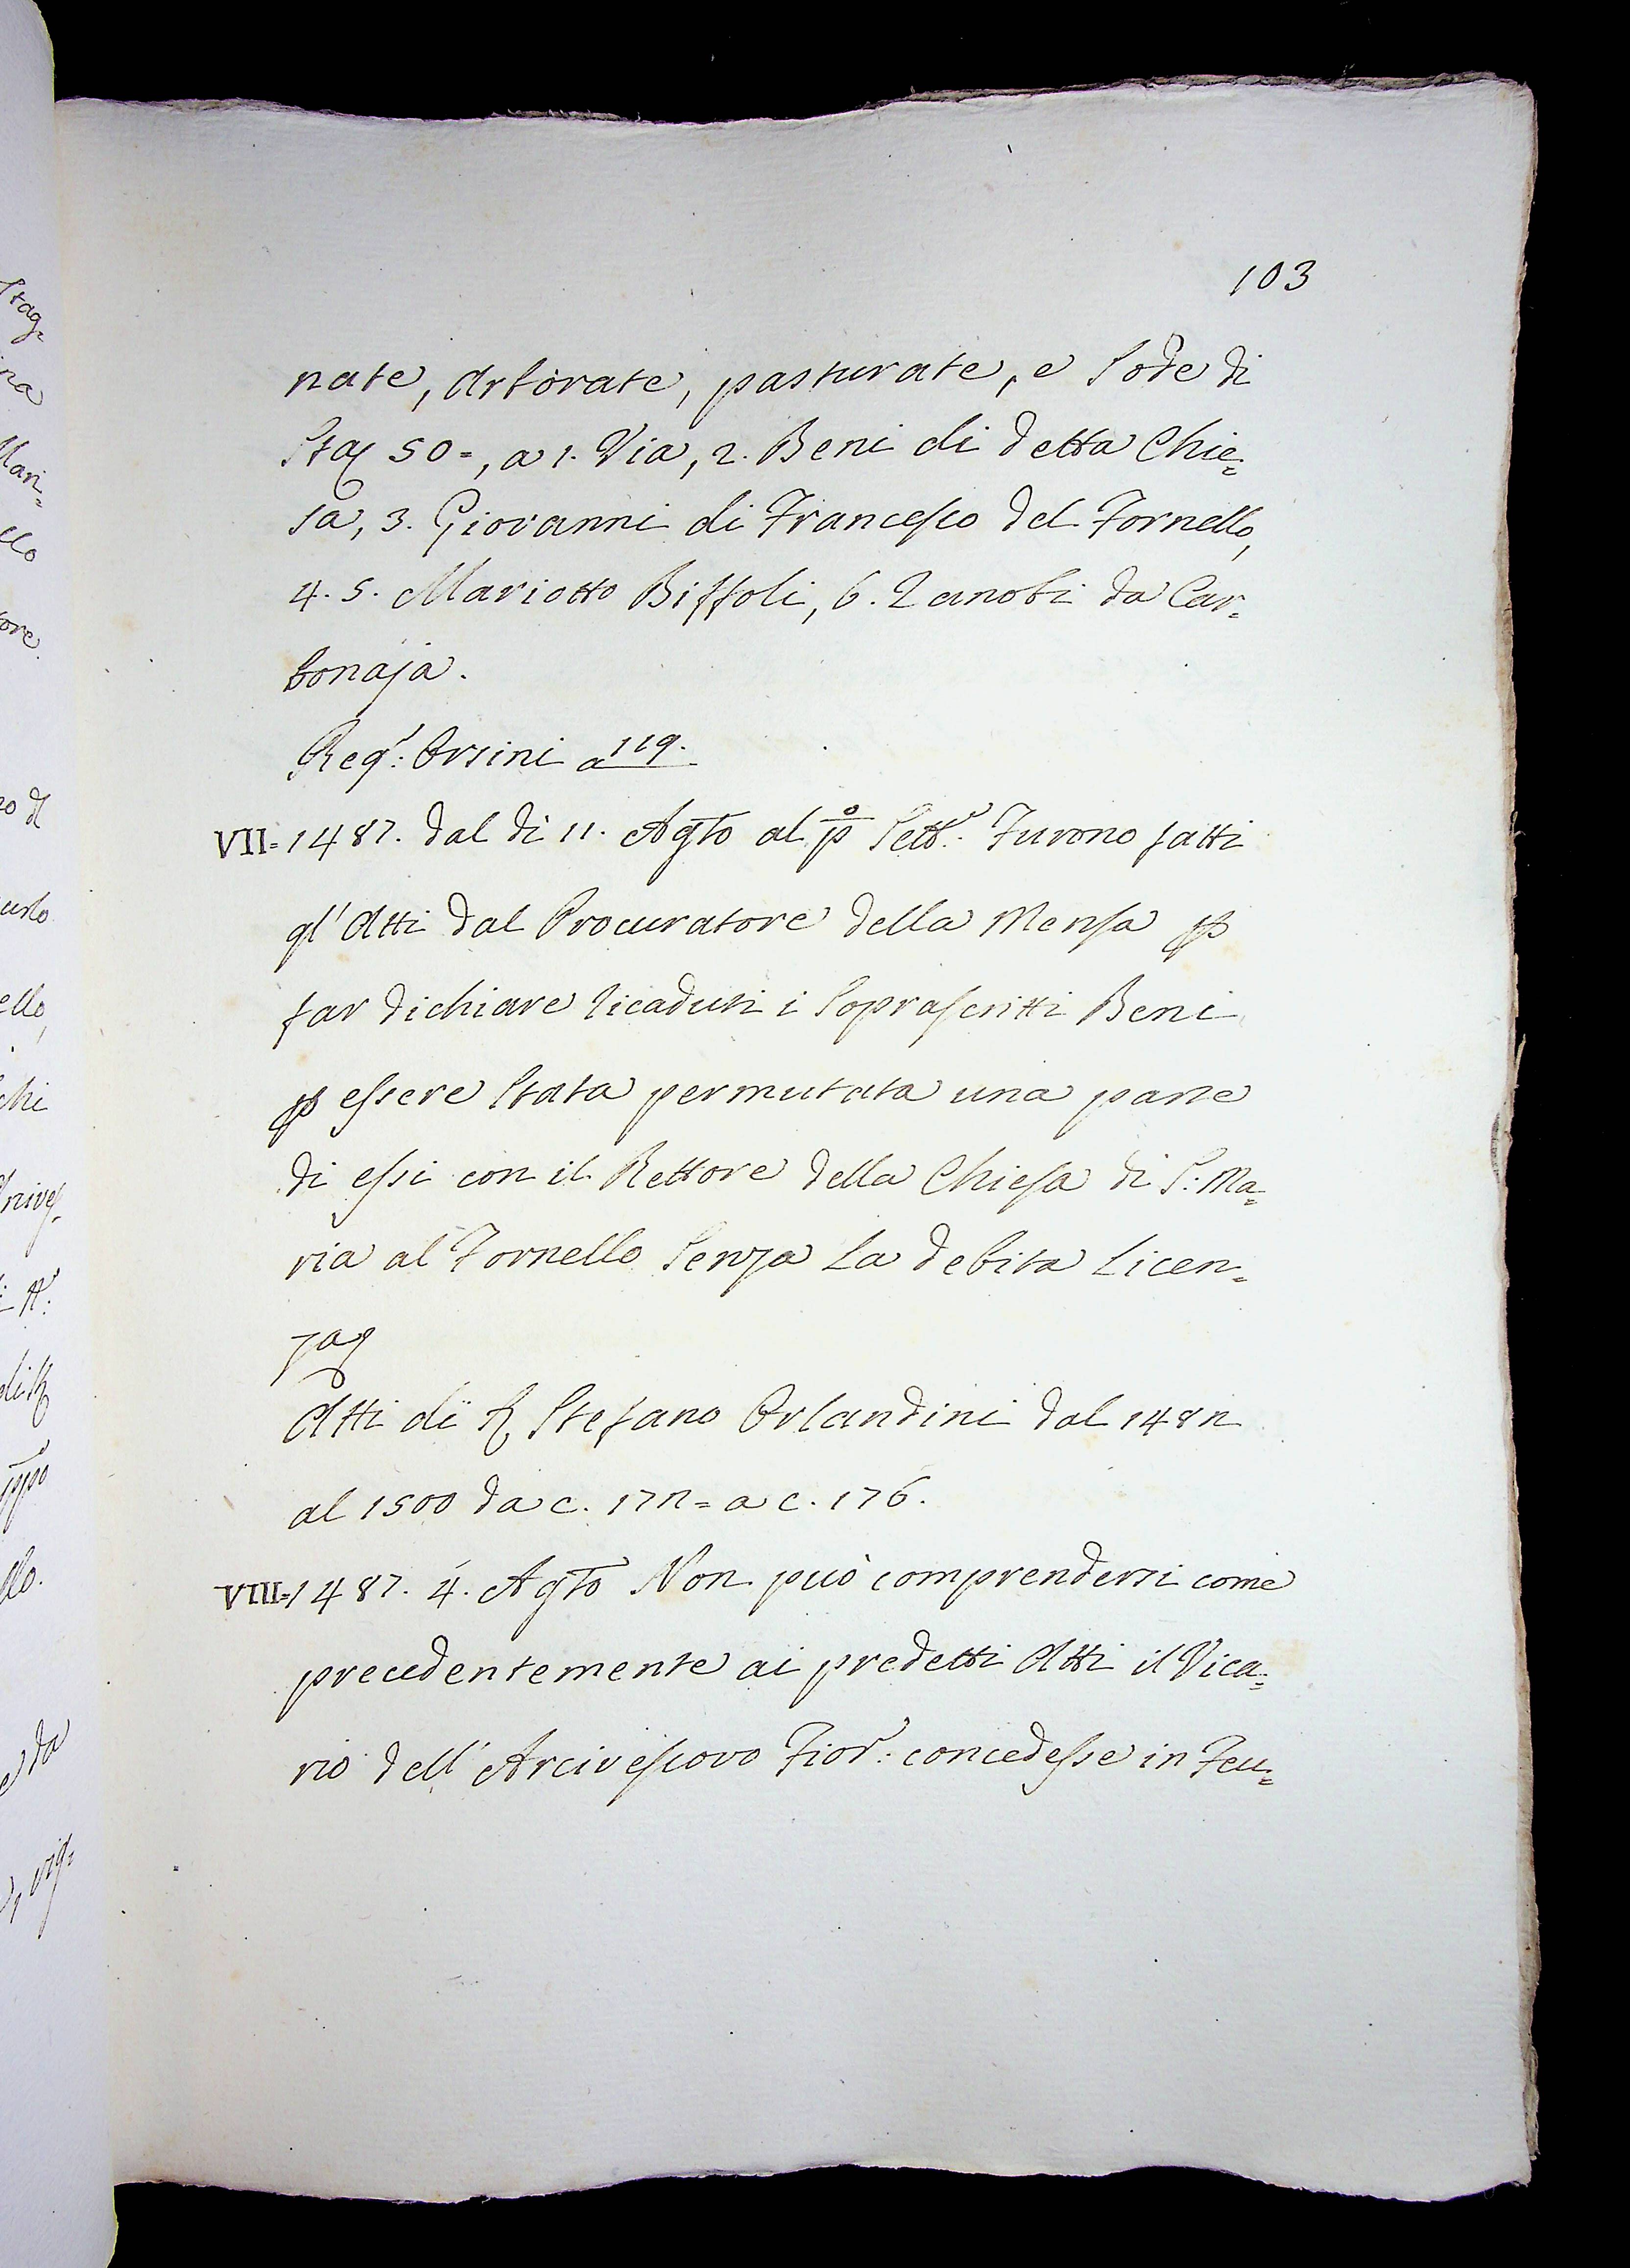 103
nate, arborate, pasturate, e Sode di
Sta: 50=, a 1. Via, 2. Beni di detta Chie=
sa, 3. Giovanni di Francesco del Fornello,
4. 5. Mariotto Biffoli, 6. Zanobi da Car=
bonaja.
Reg.: Orsini a 119.
VII=1487. dal di 11. Agto al po Sett.e Furono fatti
gl'Atti dal Procuratore della Mensa p
far dichiare ricaduti i Soprascritti Beni
p essere Stata permutata una parte
di essi con il Rettore della Chiesa di S: Ma=
ria al Fornello Senza La debita Licen=
za
Atti di Stefano Orlandini dal 1482
al 1500 da c. 172= a c. 176.
VIII=1487. 4. Agto Non può comprendersi come
precedentemente ai predetti Atti il Vica=
rio dell'Arcivescovo Fior.: concedesse in Feu=